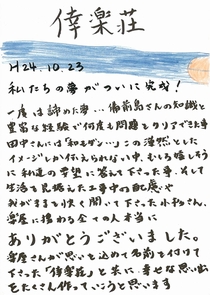 倖楽荘
H24.10.23
私たちの夢がついに完成!
一度は諦めた夢…備前島さんの知識と
豊富な経験で何度も問題をクリアできた事
田中さんには「和モダン…」この漠然とした
イメージしか伝えられない中、むしろ嬉しそう
に私達の希望に答えて下さった事、そして
生活を見据えた工事中の配慮や
わがままを快く聞いて下さった小杉さん、
楽屋に携わる全ての人本当に
ありがとうございました。
楽屋さんが思いを込めて名前を付けて
下さった「倖楽荘」と共に、幸せな思い出
をたくさん作っていこうと思います